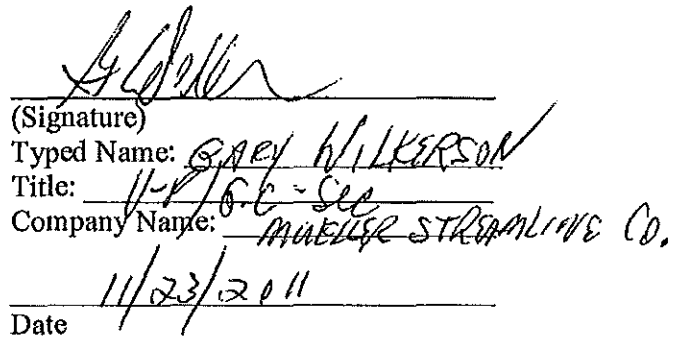 (Signature)
Typed Name: GARY WILKERSON
Title: V-P/G.C-Sec
Company Name: MUELLER STREAMLINE CO.
11/23/2011
Date